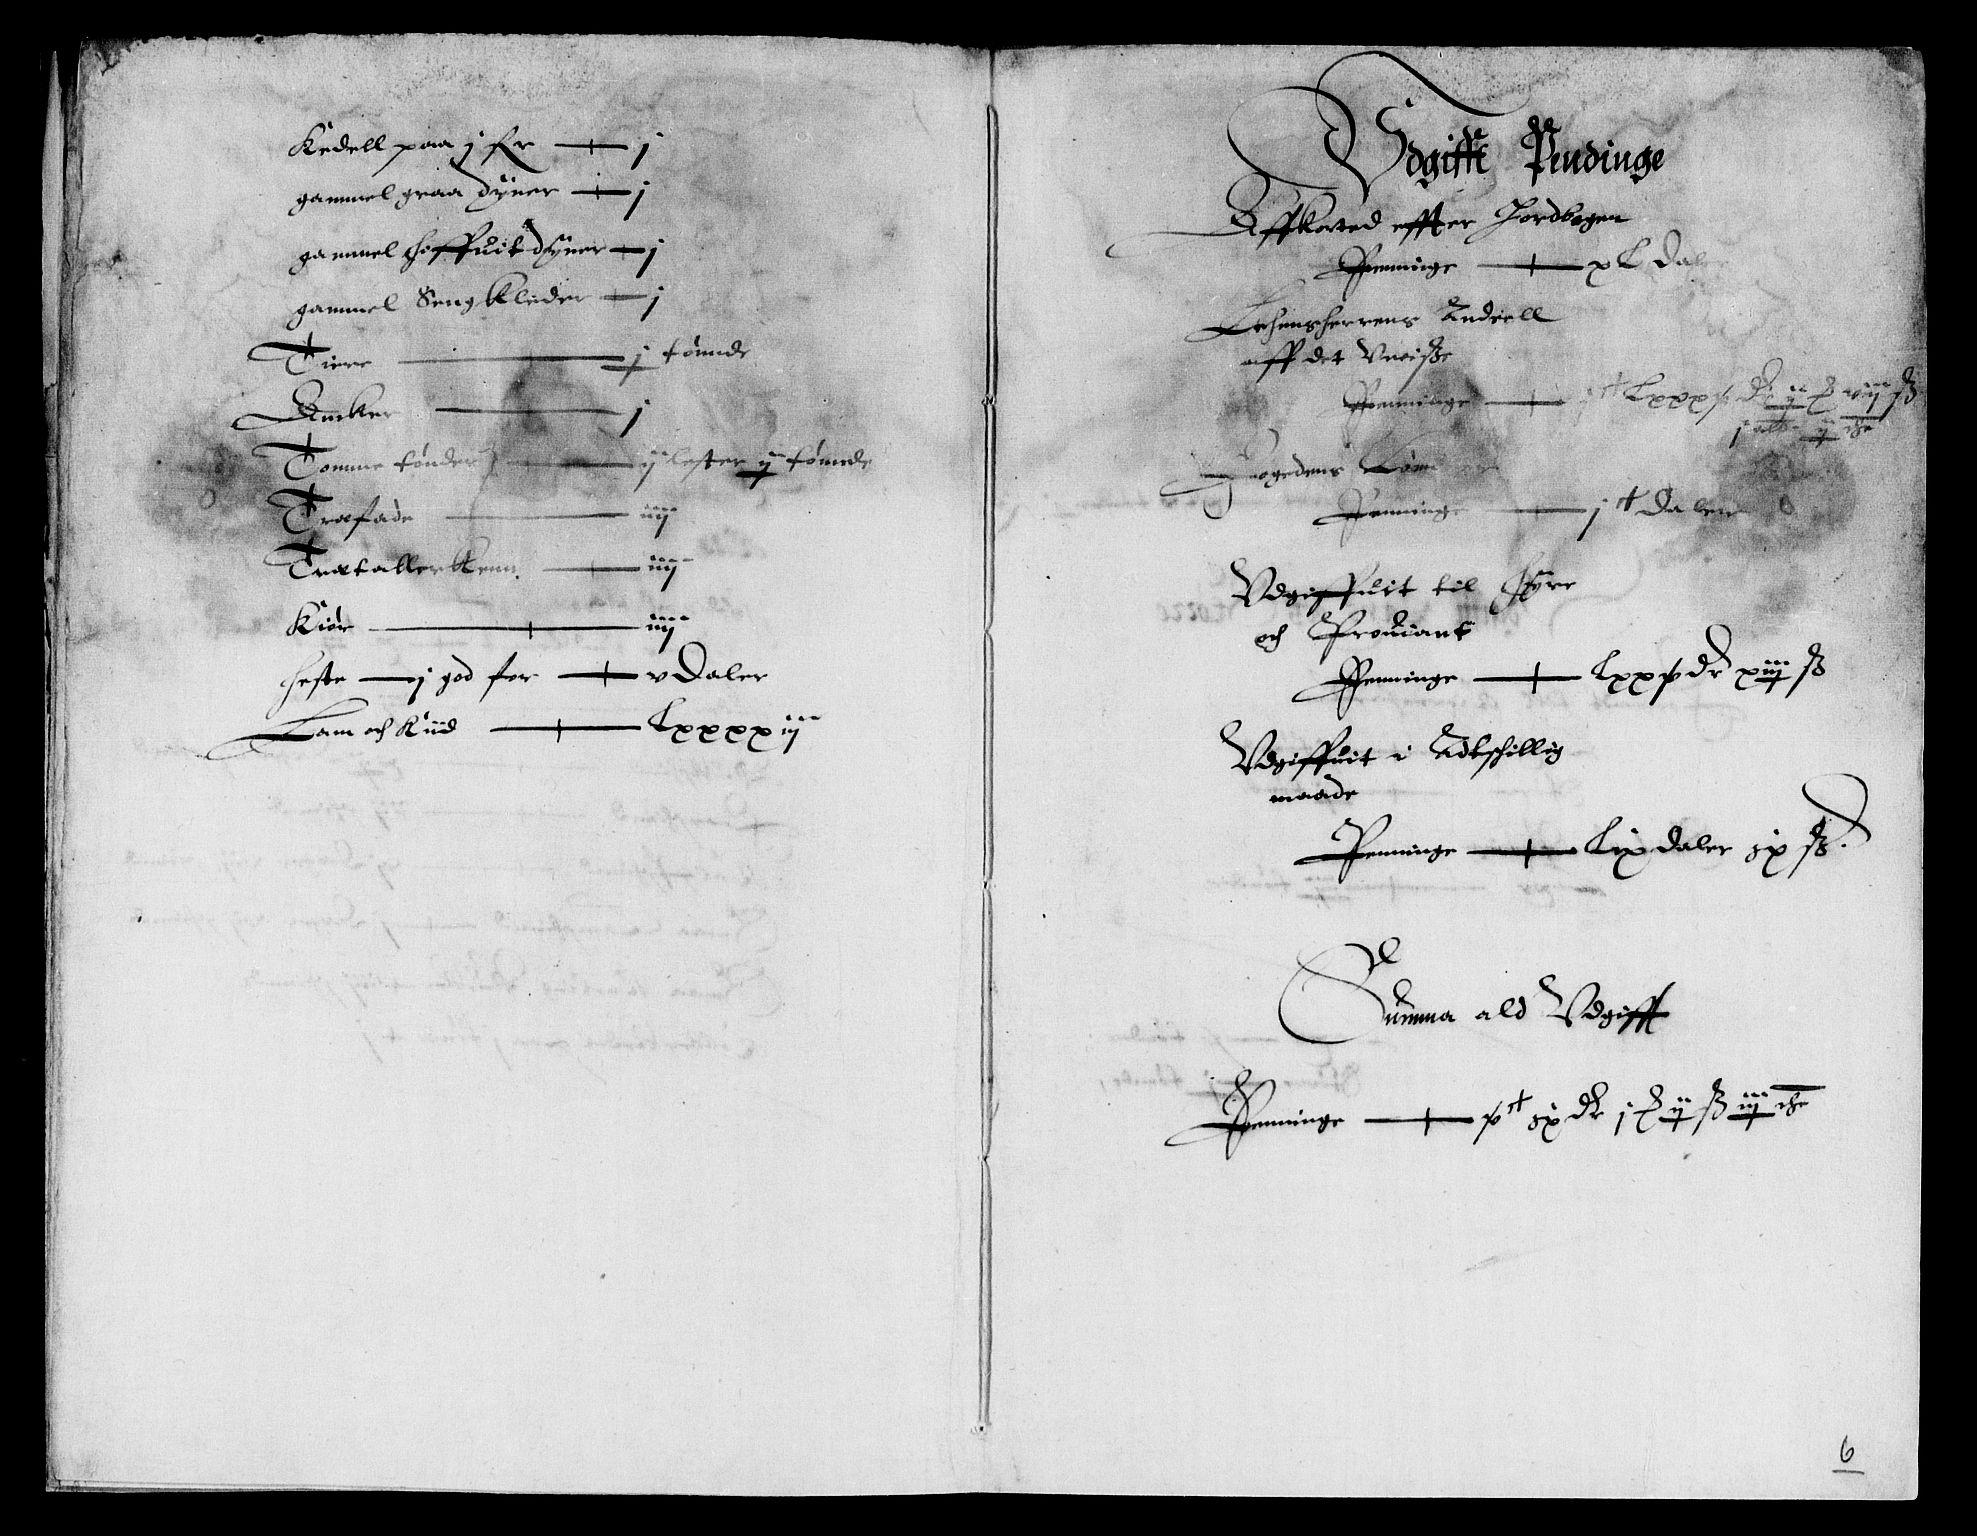 Kedell paa j ſkr — j
gammel graa dyner — j
gammel hoffuit dyner — j
gammel Sengkleder — j
Tiere — j tønde
Ancker — j
Tomme tønder — ij lester ij tønde
Træfade — iiij
Trætallerkenn — iiij
Kiør — iiij
heste — j god for — v Daler
Lam och Kiid — Lxxxxiij
Vdgifft Pendinge
Affkorted effter Jordbogen
Penninge — xL Daler
Lehensherrens Andeell
aff det Vuiſſe
Penninge — jc Lxxxv dr ij ℥ viij ß
j alb ij che
Fogedens Løn
Penninge — jc Daler
Vdgiffuit til Hyre
och Prouiant
Penninge — Lxxv dr xiiij ß
Vdgiffuit i Adtschillig
maade
Penninge — Lix daler ix ß
Summa ald Vdgifft
Penninge — vc ix dr j ℥ ij ß iiij che
6